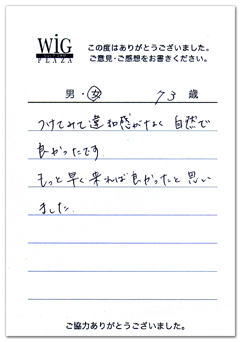 WIG
PLAZA
この度はありがとうございました。
ご意見・ご感想をお書きください。
男・女 73 歳
つけてみて違和感がなく 自然で
良かったです
もっと早く来れば良かったと思い
ました
ご協力ありがとうございました。